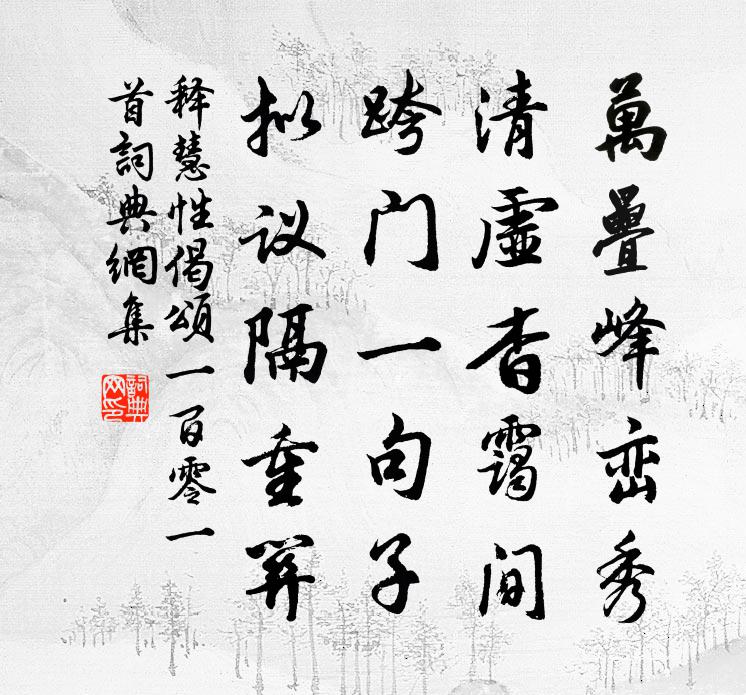 萬疊峰巒秀
清虛杳靄間
跨门一句子
拟议隔重关
释慧性偈頌一百零一
首詞典網集
詞典
网印